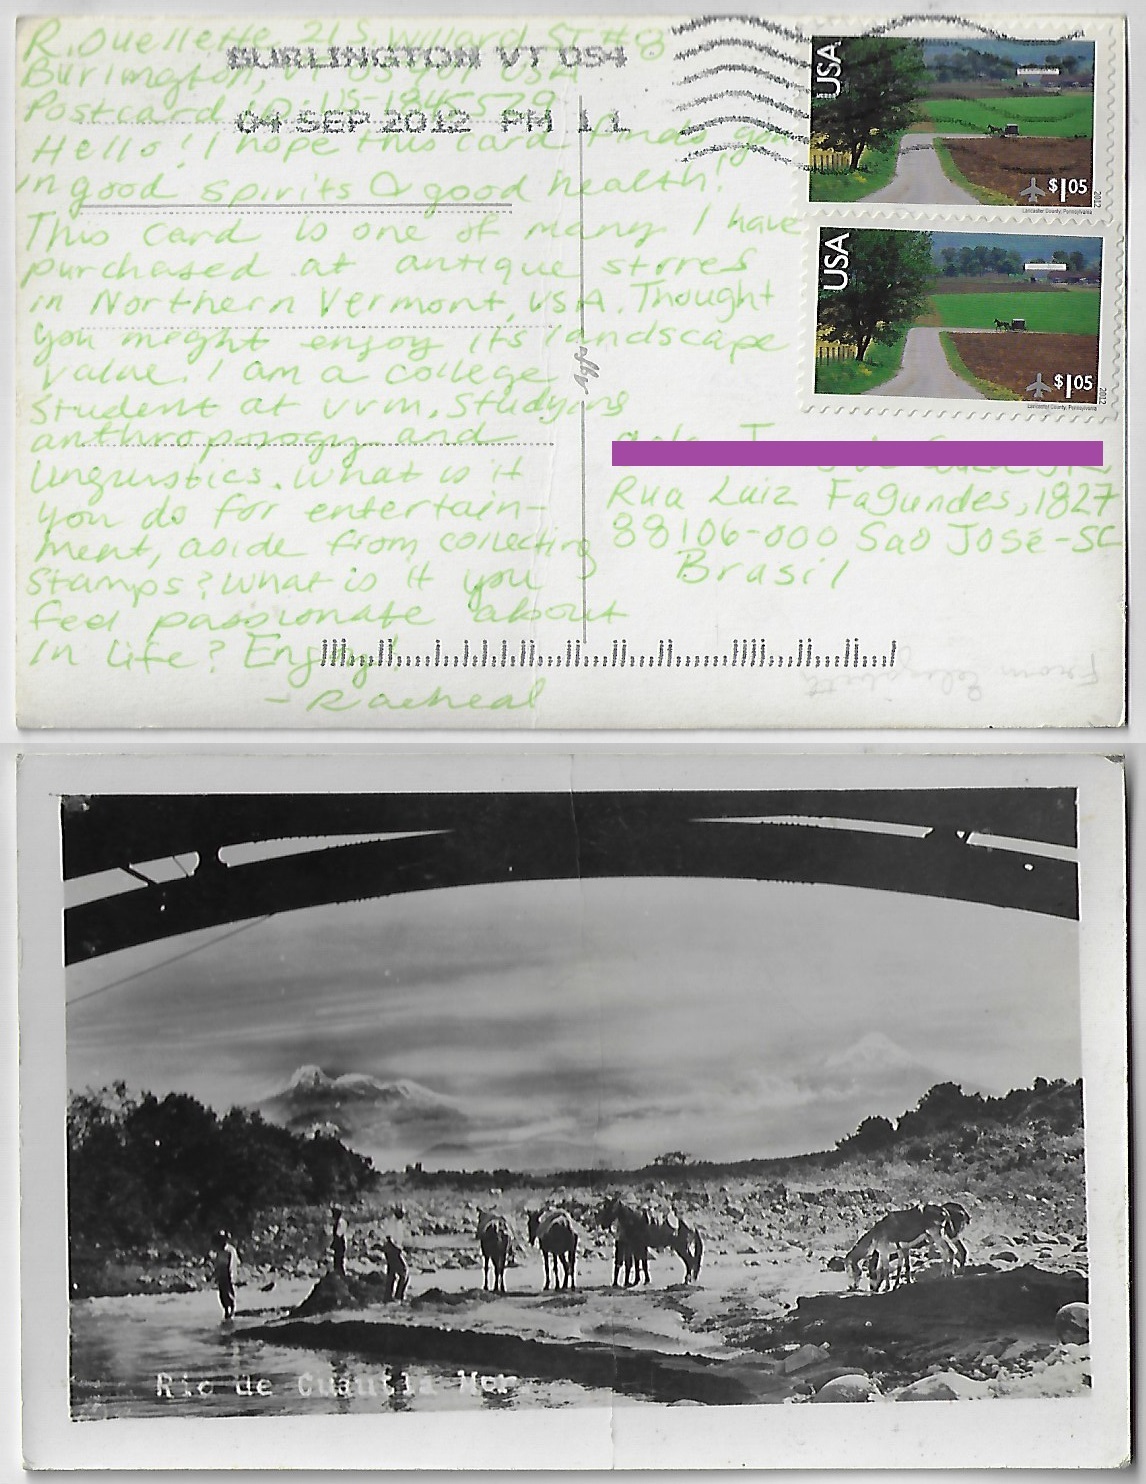 R. Ouellette 21 S. Willard ST #8
Burlington, VT 05401 USA
Postcard ID: US-1845579
Hello! I hope this card finds you
in good spirits & good health!
This card is one of many I have
purchased at antique stores
in Northern Vermont, USA. Thought
you meght enjoy its landscape
value. I am a college
student at UVM, Studying
anthropology and
linguistics. What is it
you do for entertain-
ment, aside from collecting
Stamps? What is it you
feel passionate about
in life? Enjoy!
- Racheal
BURLINGTON VT 054
04 SEP 2012 PM 11
USA
$1.05
2012
Lancaster County, Pennsylvania
USA
$1.05
2012
Lancaster County, Pennsylvania
Agfa
Rua Luiz Fagundes, 1827
88106-000 Sao José-SC
Brasil
From Elizabeth
Rio de Cuautla Mor.